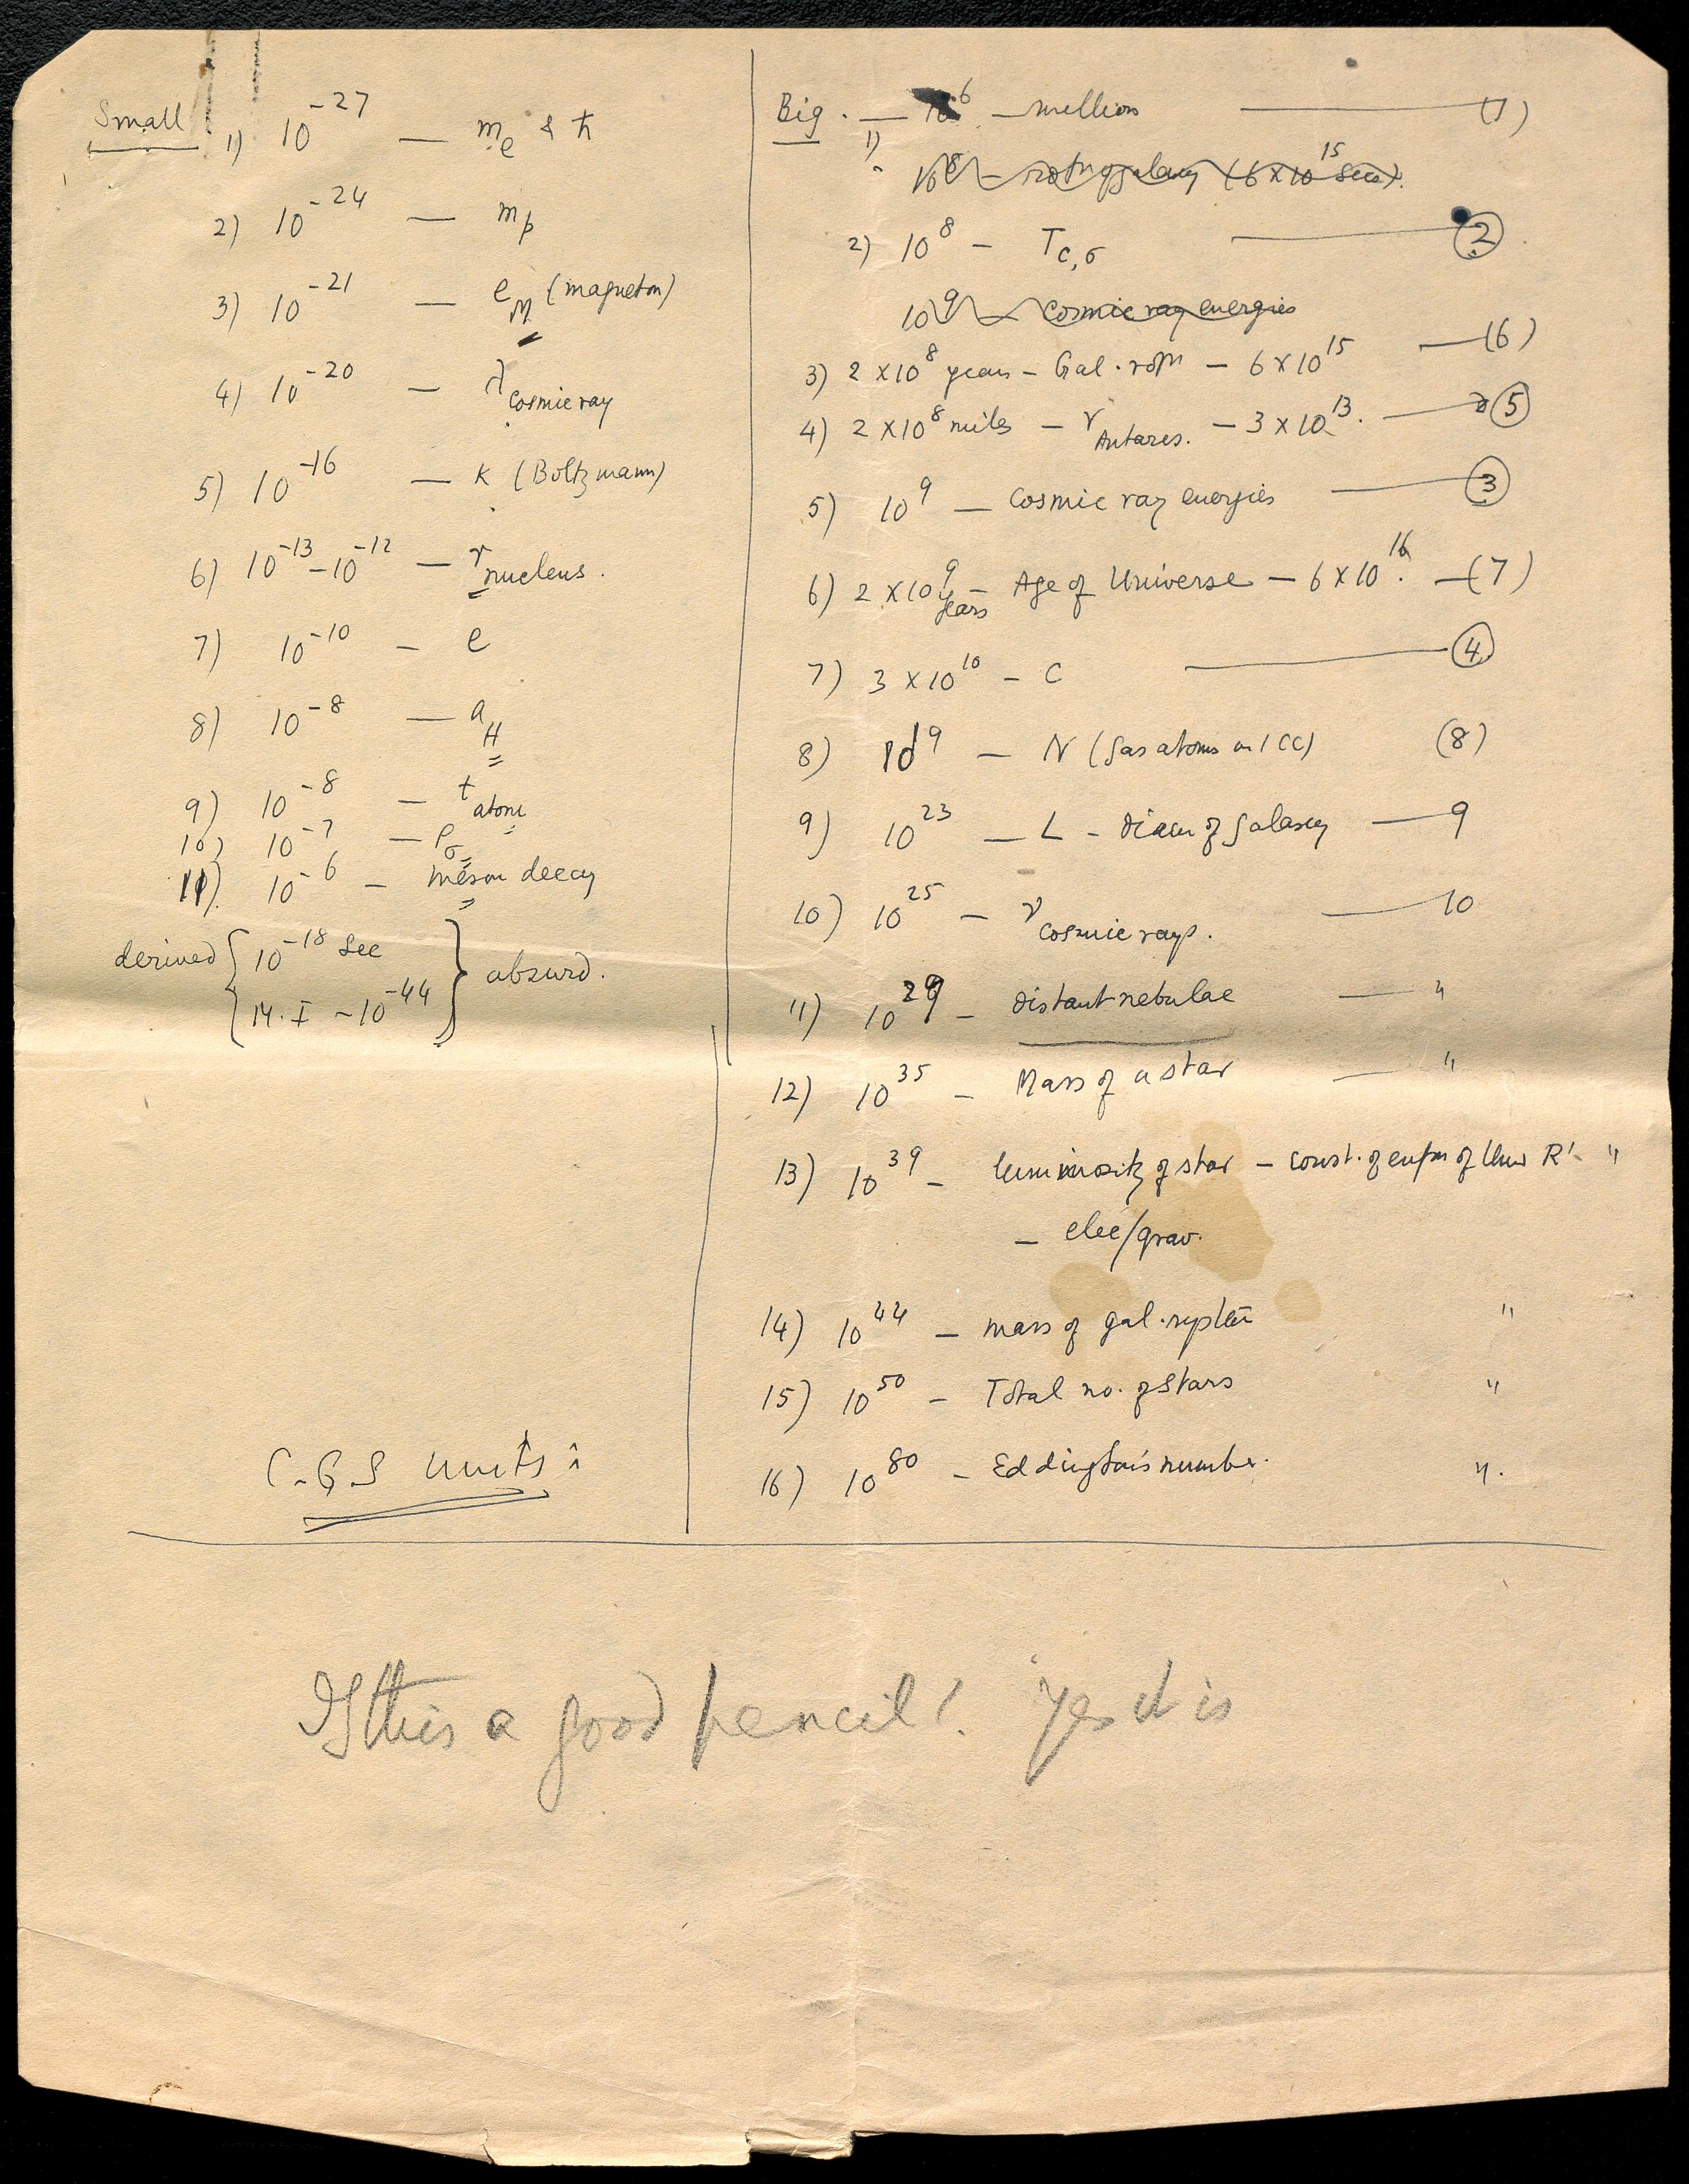 Small
1) 10^-27 — m_e & ħ
2) 10^-24 — m_p
3) 10^-21 — e_M (magneton)
4) 10^-20 — λ_cosmic ray
5) 10^-16 — k (Boltzmann)
6) 10^-13 – 10^-12 — r_nucleus.
7) 10^-10 — e
8) 10^-8 — a_H
9) 10^-8 — t_atom
10) 10^-7 — ρ_σ
11) 10^-6 — meson decay
derived { 10^-18 sec
M.I ~ 10^-44 } absurd.
C.G.S units:
Big.
1) — 10^6 — million — (1)
10^8 — rotn of galaxy (6×10^15 secs).
2) 10^8 — T_c,σ — 2
10^9 — cosmic ray energies
3) 2×10^8 years — Gal. rotn — 6×10^15 — (6)
4) 2×10^8 miles — r_Antares. — 3×10^13. — 5
5) 10^9 — cosmic ray energies — 3
6) 2×10^9 years — Age of Universe — 6×10^16. — (7)
7) 3×10^10 — C — 4
8) 10^19 — N (gas atoms in 1 cc) (8)
9) 10^23 — L — diam of galaxy — 9
10) 10^25 — ν_cosmic rays. — 10
11) 10^29 — distant nebulae — "
12) 10^35 — Mass of a star — "
13) 10^39 — luminosity of star — const. of of R' "
— elec/grav.
14) 10^44 — mass of gal. "
15) 10^50 — Total no. of stars "
16) 10^80 — Eddington's number. ".
Is this a good pencil? Yes it is